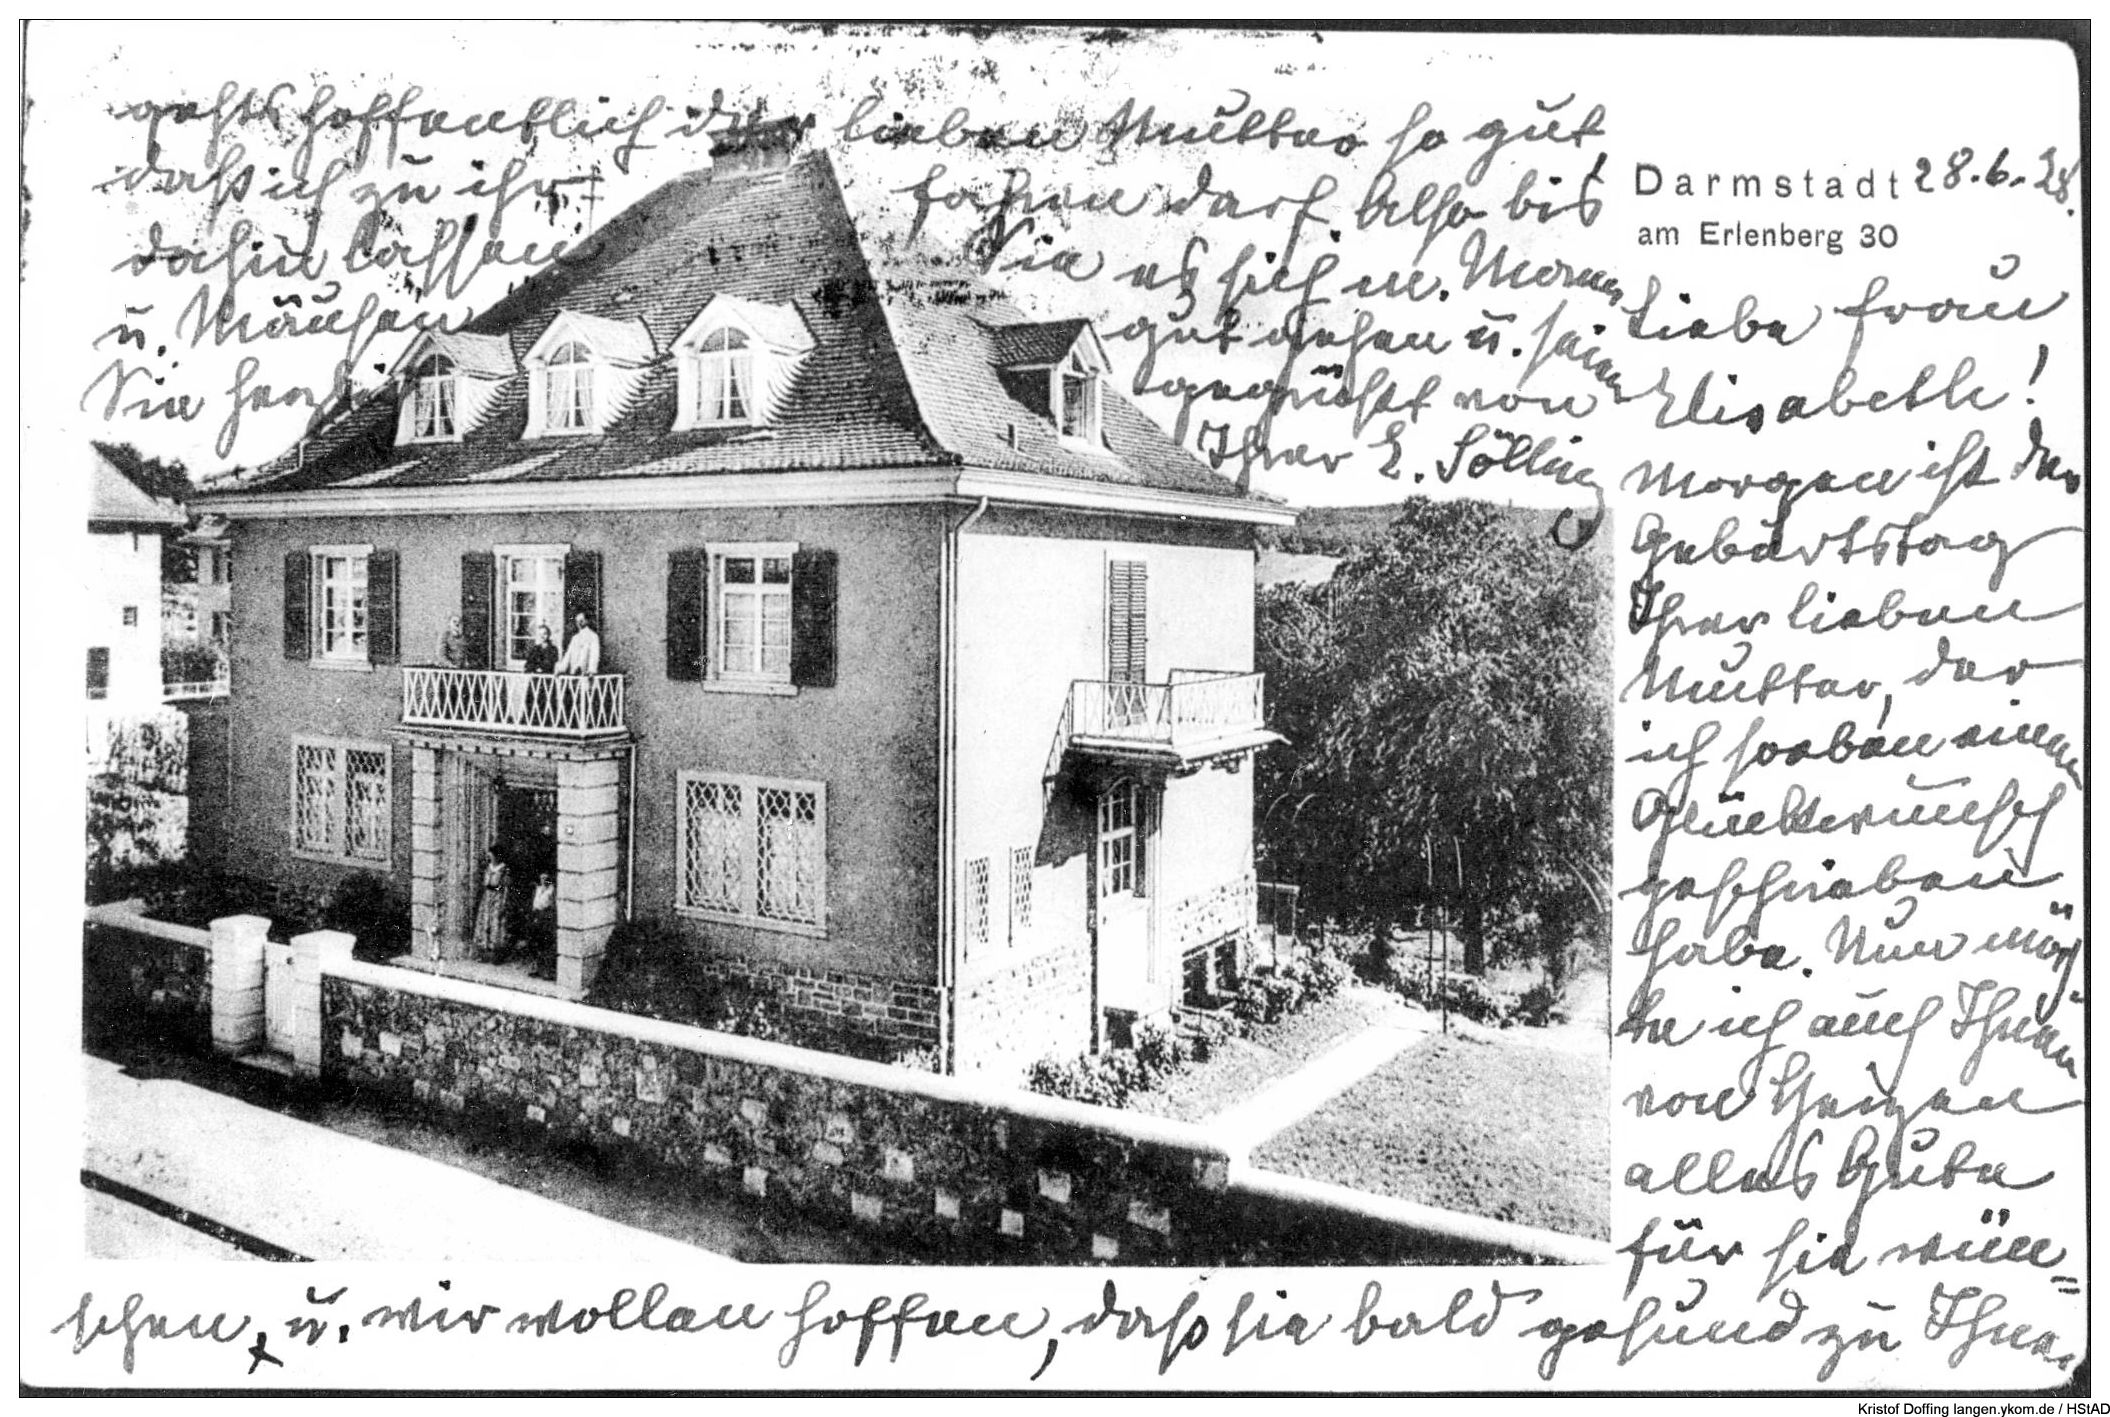 Darmstadt 28.6.28.
am Erlenberg 30
Liebe Frau
Elisabeth!
Morgen ist der
Geburtstag
Ihrer lieben
Mutter, der
ich soeben einen
Glückwunsch
geschrieben
habe. Nun möch-
te ich auch Ihnen
von Herzen
alles Gute
für sie wün=
schen, u. wir wollen hoffen, daß sie bald gesund zu Ihnen
gehts hoffentlich der lieben Mutter so gut,
daß ich zu ihr fahren darf. Also bis
dahin lassen Sie es sich m. Mann
u. Mäuschen gut gehen u. seien
Sie herzl. gegrüßt von
Ihrer E. Sölling
Kristof Doffing langen.ykom.de / HStAD